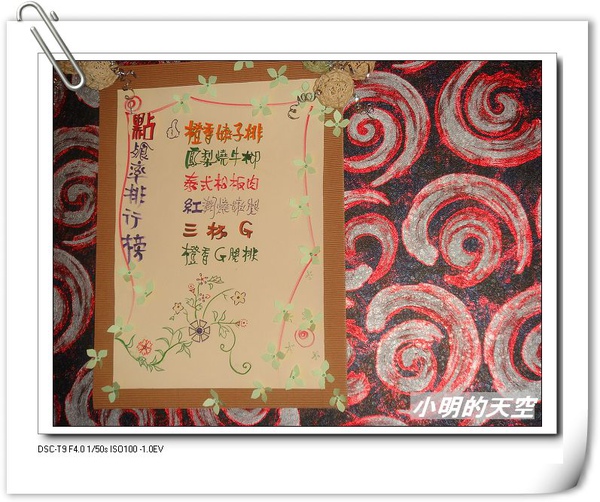 點餐率排行榜
橙香嫩子排
鳳梨燒牛柳
泰式松板肉
紅
三杯 G
橙香G腿排
小明的天空
DSC-T9 F4.0 1/50s ISO100 -1.0EV